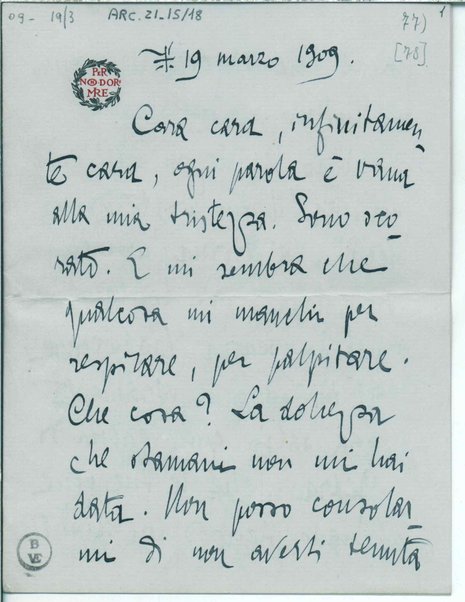 09- 19/3 ARC.21-IS/18 77) 1
[78]
19 marzo 1909.
PER
NON DOR
MIRE
Cara cara, infinitamen
te cara, ogni parola è vana
alla mia tristezza. Sono aco
rato. E mi sembra che
qualcosa mi manchi per
respirare, per palpitare.
Che cosa? La dolcezza
che stamani non mi hai
data. Non posso consolar
mi di non averti tenuta
B
VE